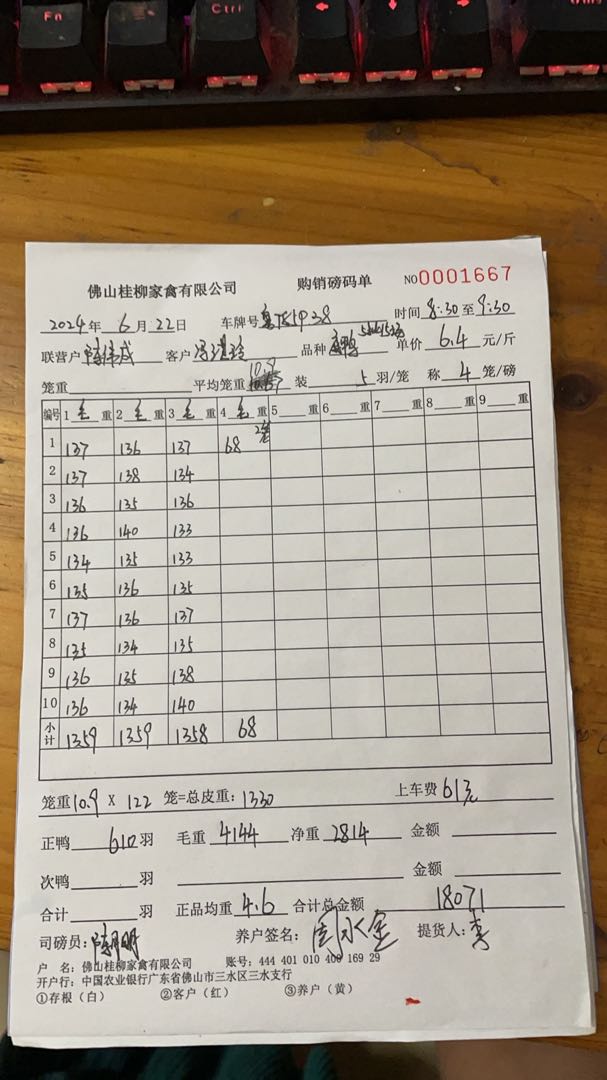 Fn
Ctrl
佛山桂柳家禽有限公司 购销磅码单 NO 0001667
2024年 6月 22日 车牌号 时间 8:30 至 9:30
联营户 客户 品种 单价 6.4 元/斤
笼重 平均笼重 10.9 装 5 羽/笼 称 4 笼/磅
编号 1 毛 重 2 毛 重 3 毛 重 4 毛 重 5 重 6 重 7 重 8 重 9 重
1 137 136 137 68
2 137 138 134
3 136 135 136
4 136 140 133
5 134 135 133
6 135 136 135
7 137 136 137
8 135 134 135
9 136 135 138
10 136 134 140
小计 1359 1359 1358 68
笼重 10.9 X 122 笼=总皮重: 1330 上车费 61元
正鸭 610 羽 毛重 4144 净重 2814 金额
次鸭 羽 金额
合计 羽 正品均重 4.6 合计总金额 18071
司磅员: 养户签名: 提货人: 李
户 名: 佛山桂柳家禽有限公司 账号: 444 401 010 400 169 29
开户行: 中国农业银行广东省佛山市三水区三水支行
①存根（白） ②客户（红） ③养户（黄）